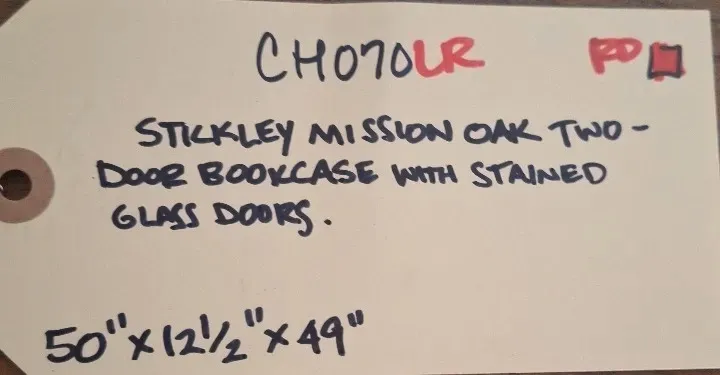 CH070LR RD
STICKLEY MISSION OAK TWO-
DOOR BOOKCASE WITH STAINED
GLASS DOORS.
50"x12½"x49"